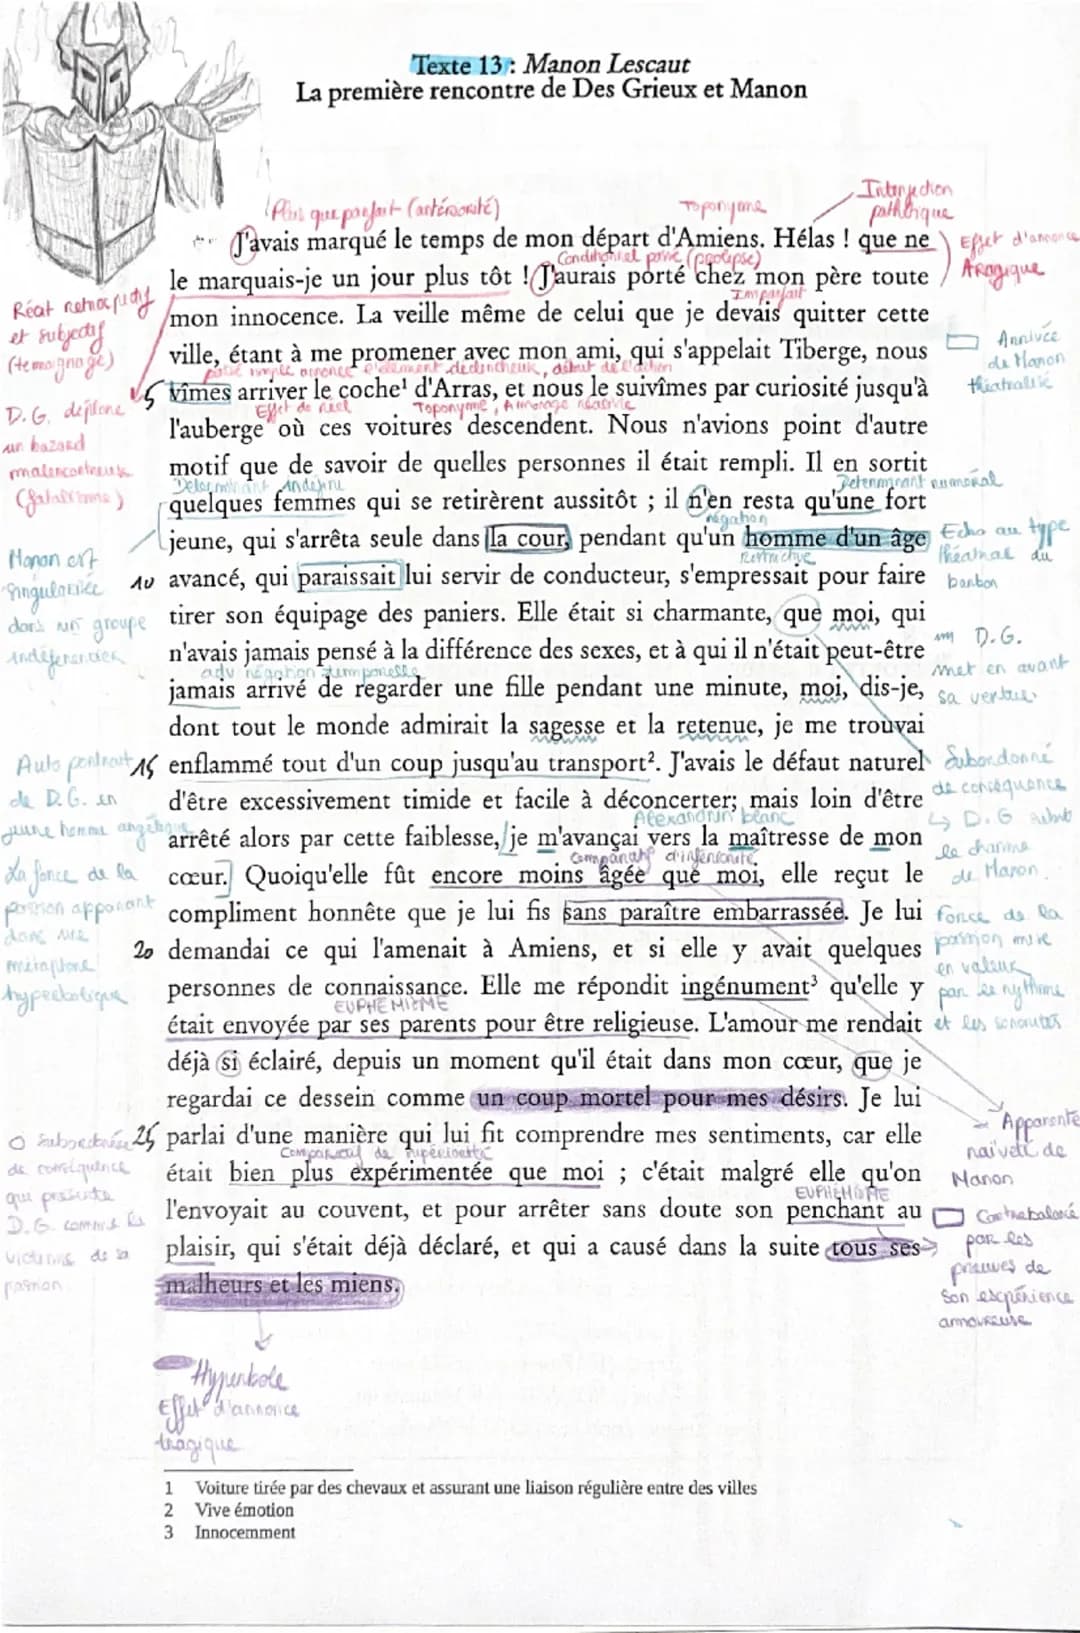 Texte 13 : Manon Lescaut
La première rencontre de Des Grieux et Manon
Plus que parfait (antériorité)
Toponyme
Interjection
pathétique
J'avais marqué le temps de mon départ d'Amiens. Hélas ! que ne
Effet d'annonce
tragique
Conditionnel passé (prolepse)
le marquais-je un jour plus tôt ! J'aurais porté chez mon père toute
Imparfait
Récit rétrospectif
et subjectif
(témoignage)
mon innocence. La veille même de celui que je devais quitter cette
ville, étant à me promener avec mon ami, qui s'appelait Tiberge, nous
Arrivée
de Manon
théâtralisé
passé simple annonce élément déclencheur, début de l'action
5 vîmes arriver le coche¹ d'Arras, et nous le suivîmes par curiosité jusqu'à
D.G. déplore
un hazard
malencontreux
(fatalisme)
Effet de réel
Toponyme, Ancrage réaliste
l'auberge où ces voitures descendent. Nous n'avions point d'autre
motif que de savoir de quelles personnes il était rempli. Il en sortit
Déterminant indéfini
Déterminant numéral
quelques femmes qui se retirèrent aussitôt ; il n'en resta qu'une fort
négation
restrictive
jeune, qui s'arrêta seule dans la cour, pendant qu'un homme d'un âge
Echo au type
théâtral du
barbon
Manon est
singularisée
dans un groupe
indifférencié
10 avancé, qui paraissait lui servir de conducteur, s'empressait pour faire
tirer son équipage des paniers. Elle était si charmante, que moi, qui
n'avais jamais pensé à la différence des sexes, et à qui il n'était peut-être
D.G.
met en avant
sa vertu
adv négation temporelle
jamais arrivé de regarder une fille pendant une minute, moi, dis-je,
dont tout le monde admirait la sagesse et la retenue, je me trouvai
Auto portrait
de D.G. en
jeune homme angélique
15 enflammé tout d'un coup jusqu'au transport². J'avais le défaut naturel
Subordonné
de conséquence
↳ D.G subit
le charme
de Manon.
d'être excessivement timide et facile à déconcerter; mais loin d'être
Alexandrin blanc
arrêté alors par cette faiblesse, je m'avançai vers la maîtresse de mon
comparatif d'infériorité
cœur. Quoiqu'elle fût encore moins âgée que moi, elle reçut le
La force de la
passion apparait
dans une
métaphore
hyperbolique
compliment honnête que je lui fis sans paraître embarrassée. Je lui
Force de la
passion mise
en valeur
par les rythmes
et les sonorités
20 demandai ce qui l'amenait à Amiens, et si elle y avait quelques
personnes de connaissance. Elle me répondit ingénument³ qu'elle y
EUPHÉMISME
était envoyée par ses parents pour être religieuse. L'amour me rendait
déjà si éclairé, depuis un moment qu'il était dans mon cœur, que je
regardai ce dessein comme un coup mortel pour mes désirs. Je lui
Apparente
naïveté de
Manon
25 parlai d'une manière qui lui fit comprendre mes sentiments, car elle
de conséquence
qui présente
D.G. comme la
victime de sa
passion
Comparatif de supériorité
était bien plus expérimentée que moi ; c'était malgré elle qu'on
EUPHÉMISME
l'envoyait au couvent, et pour arrêter sans doute son penchant au
Contrebalancé
par les
preuves de
son expérience
amoureuse
plaisir, qui s'était déjà déclaré, et qui a causé dans la suite tous ses
malheurs et les miens.
Hyperbole
Effet d'annonce
tragique
1 Voiture tirée par des chevaux et assurant une liaison régulière entre des villes
2 Vive émotion
3 Innocemment